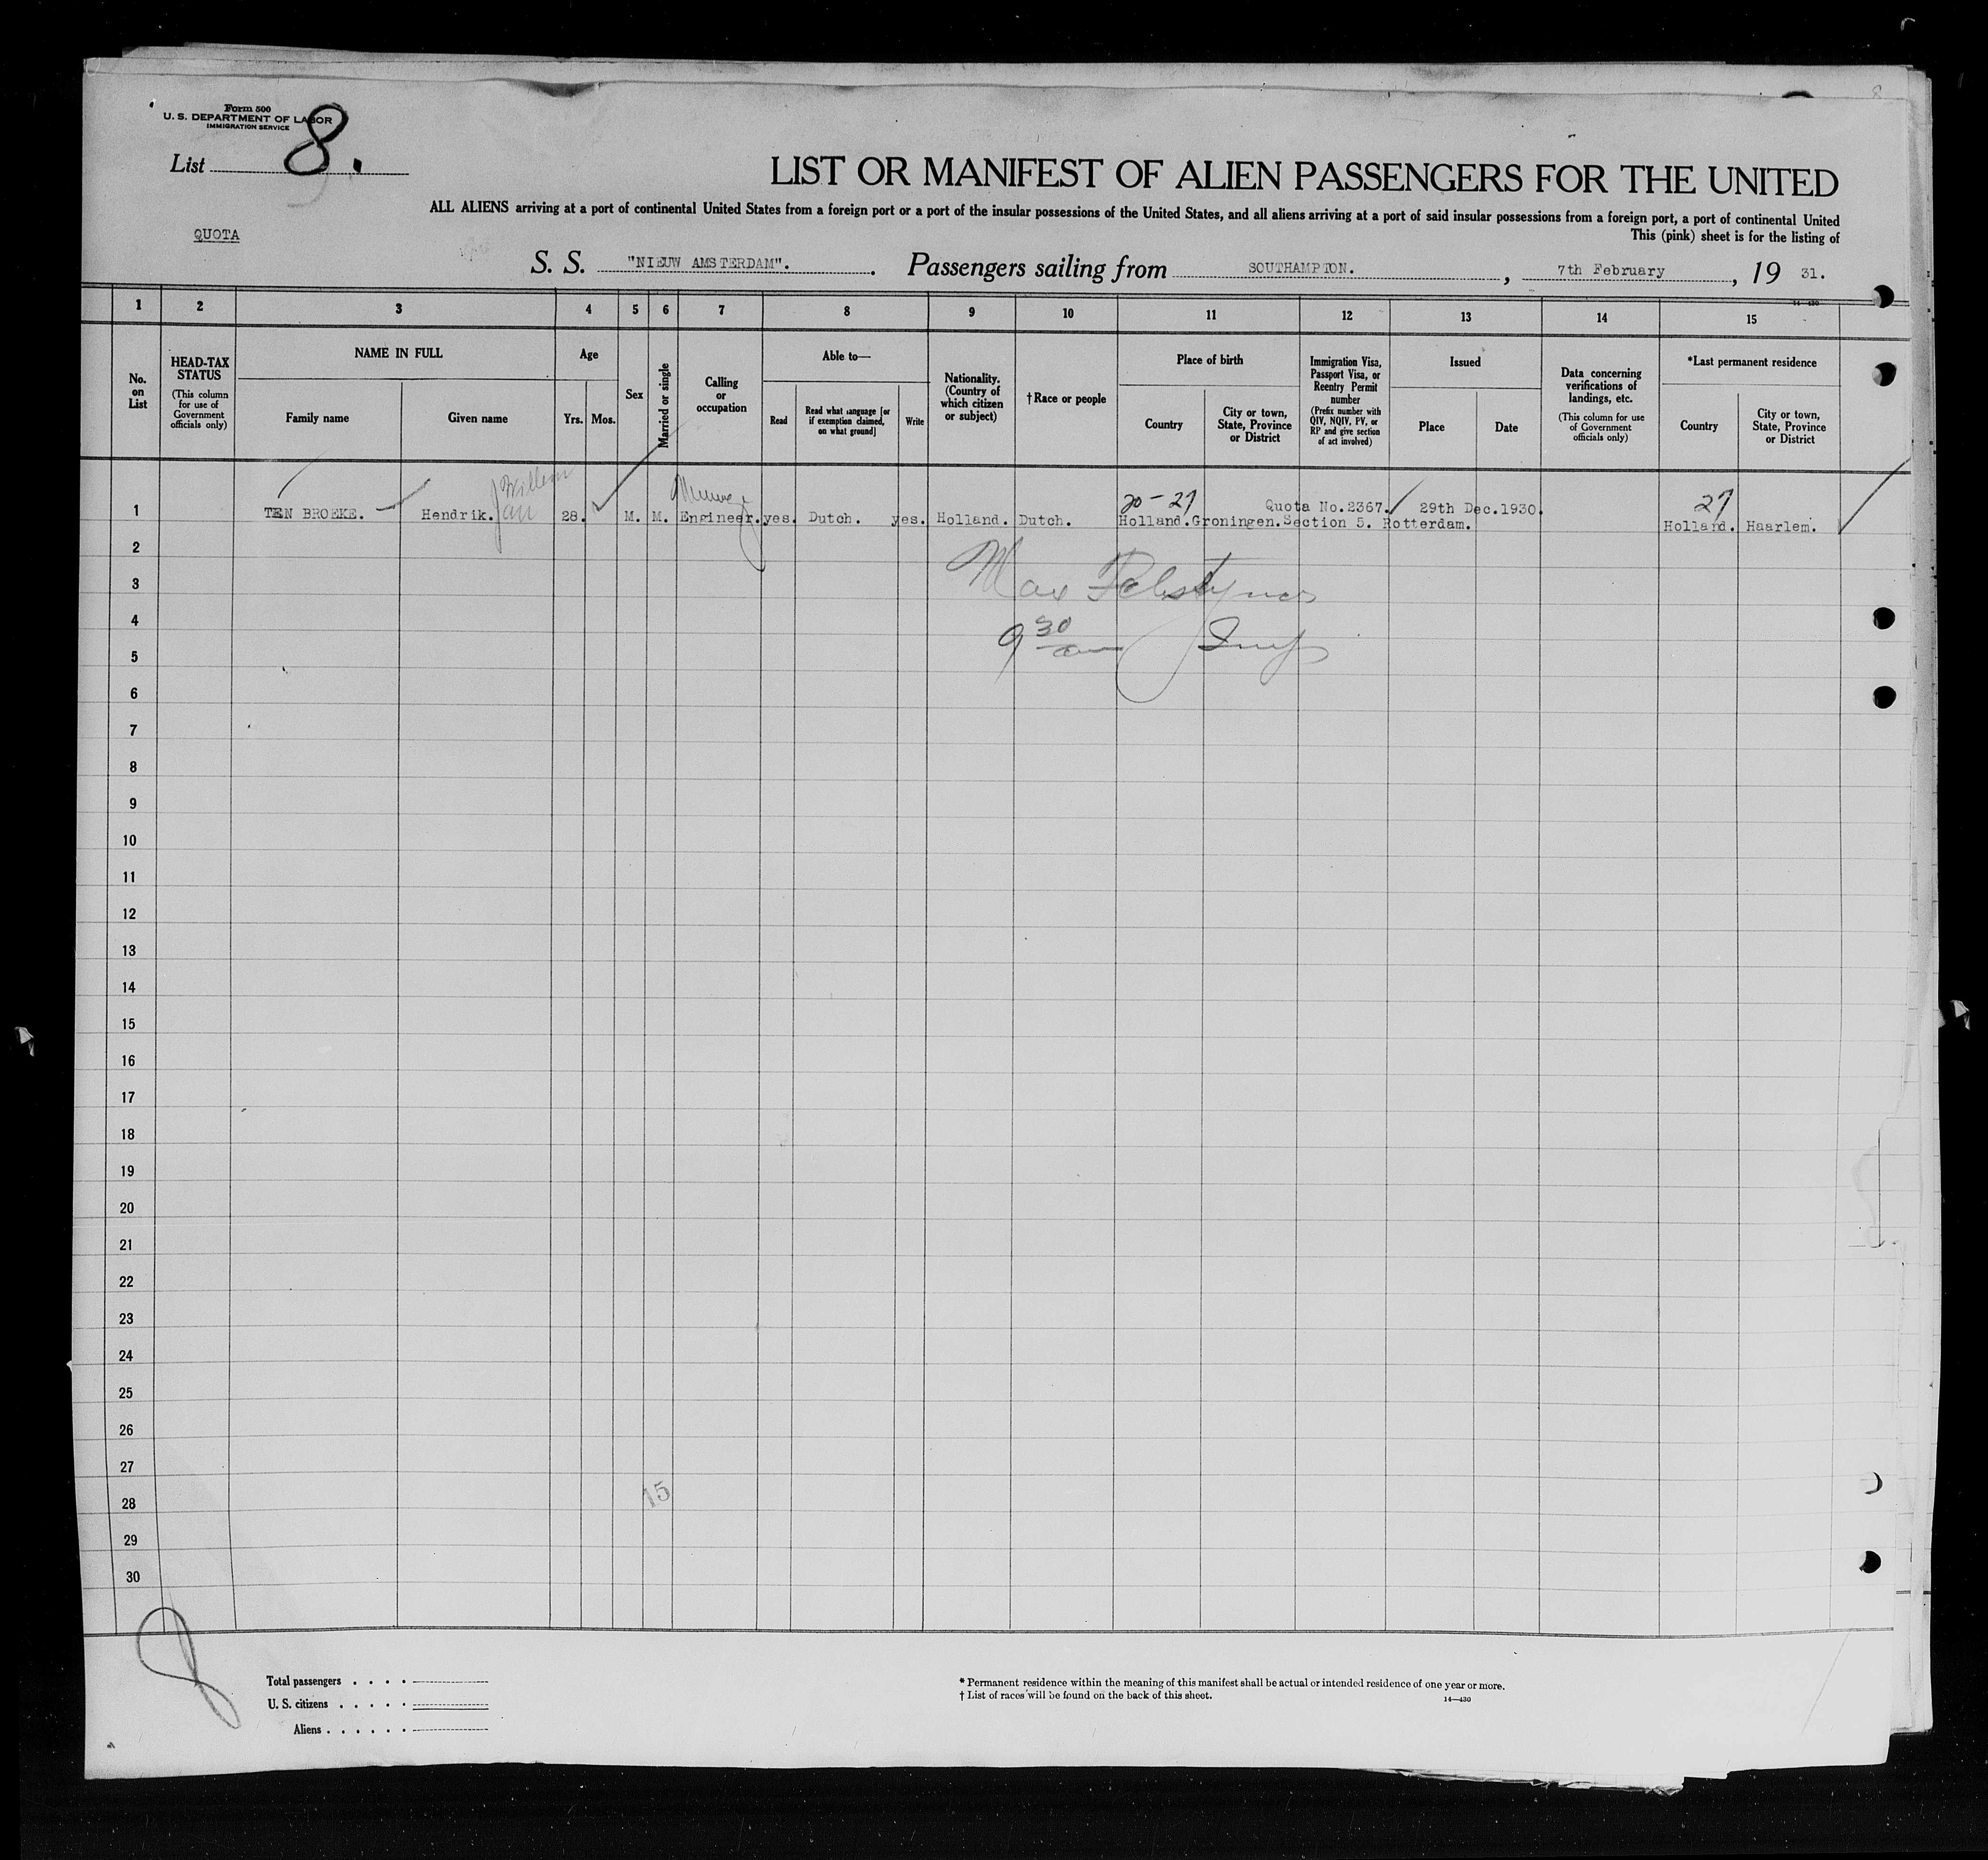 Form 500
U. S. DEPARTMENT OF LABOR
IMMIGRATION SERVICE
List 8.
LIST OR MANIFEST OF ALIEN PASSENGERS FOR THE UNITED
ALL ALIENS arriving at a port of continental United States from a foreign port or a port of the insular possessions of the United States, and all aliens arriving at a port of said insular possessions from a foreign port, a port of continental United
QUOTA
This (pink) sheet is for the listing of
S. S. "NIEUW AMSTERDAM". . Passengers sailing from SOUTHAMPTON. , 7th February , 19 31.
14—430
1 2 3 4 5 6 7 8 9 10 11 12 13 14 15
No. on List
HEAD-TAX STATUS (This column for use of Government officials only)
NAME IN FULL
Family name
Given name
Age
Yrs.
Mos.
Sex
Married or single
Calling or occupation
Able to—
Read
Read what language [or if exemption claimed, on what ground]
Write
Nationality. (Country of which citizen or subject)
†Race or people
Place of birth
Country
City or town, State, Province or District
Immigration Visa, Passport Visa, or Reentry Permit number (Prefix number with QIV, NQIV, PV, or RP and give section of act involved)
Issued
Place
Date
Data concerning verifications of landings, etc. (This column for use of Government officials only)
*Last permanent residence
Country
City or town, State, Province or District
Willem
Jan
20-27 Quota No.2367. 29th Dec.1930. 27
1 TEN BROEKE. Hendrik. 28. M. M. Engineer. yes. Dutch. yes. Holland. Dutch. Holland. Groningen. Section 5. Rotterdam. Holland. Haarlem.
2
Max
3
4
9 30 am
5
6
7
8
9
10
11
12
13
14
15
16
17
18
19
20
21
22
23
24
25
26
27
28
15
29
30
8
Total passengers . . . .
U. S. citizens . . . . .
Aliens . . . . . .
* Permanent residence within the meaning of this manifest shall be actual or intended residence of one year or more.
† List of races will be found on the back of this sheet.
14—430